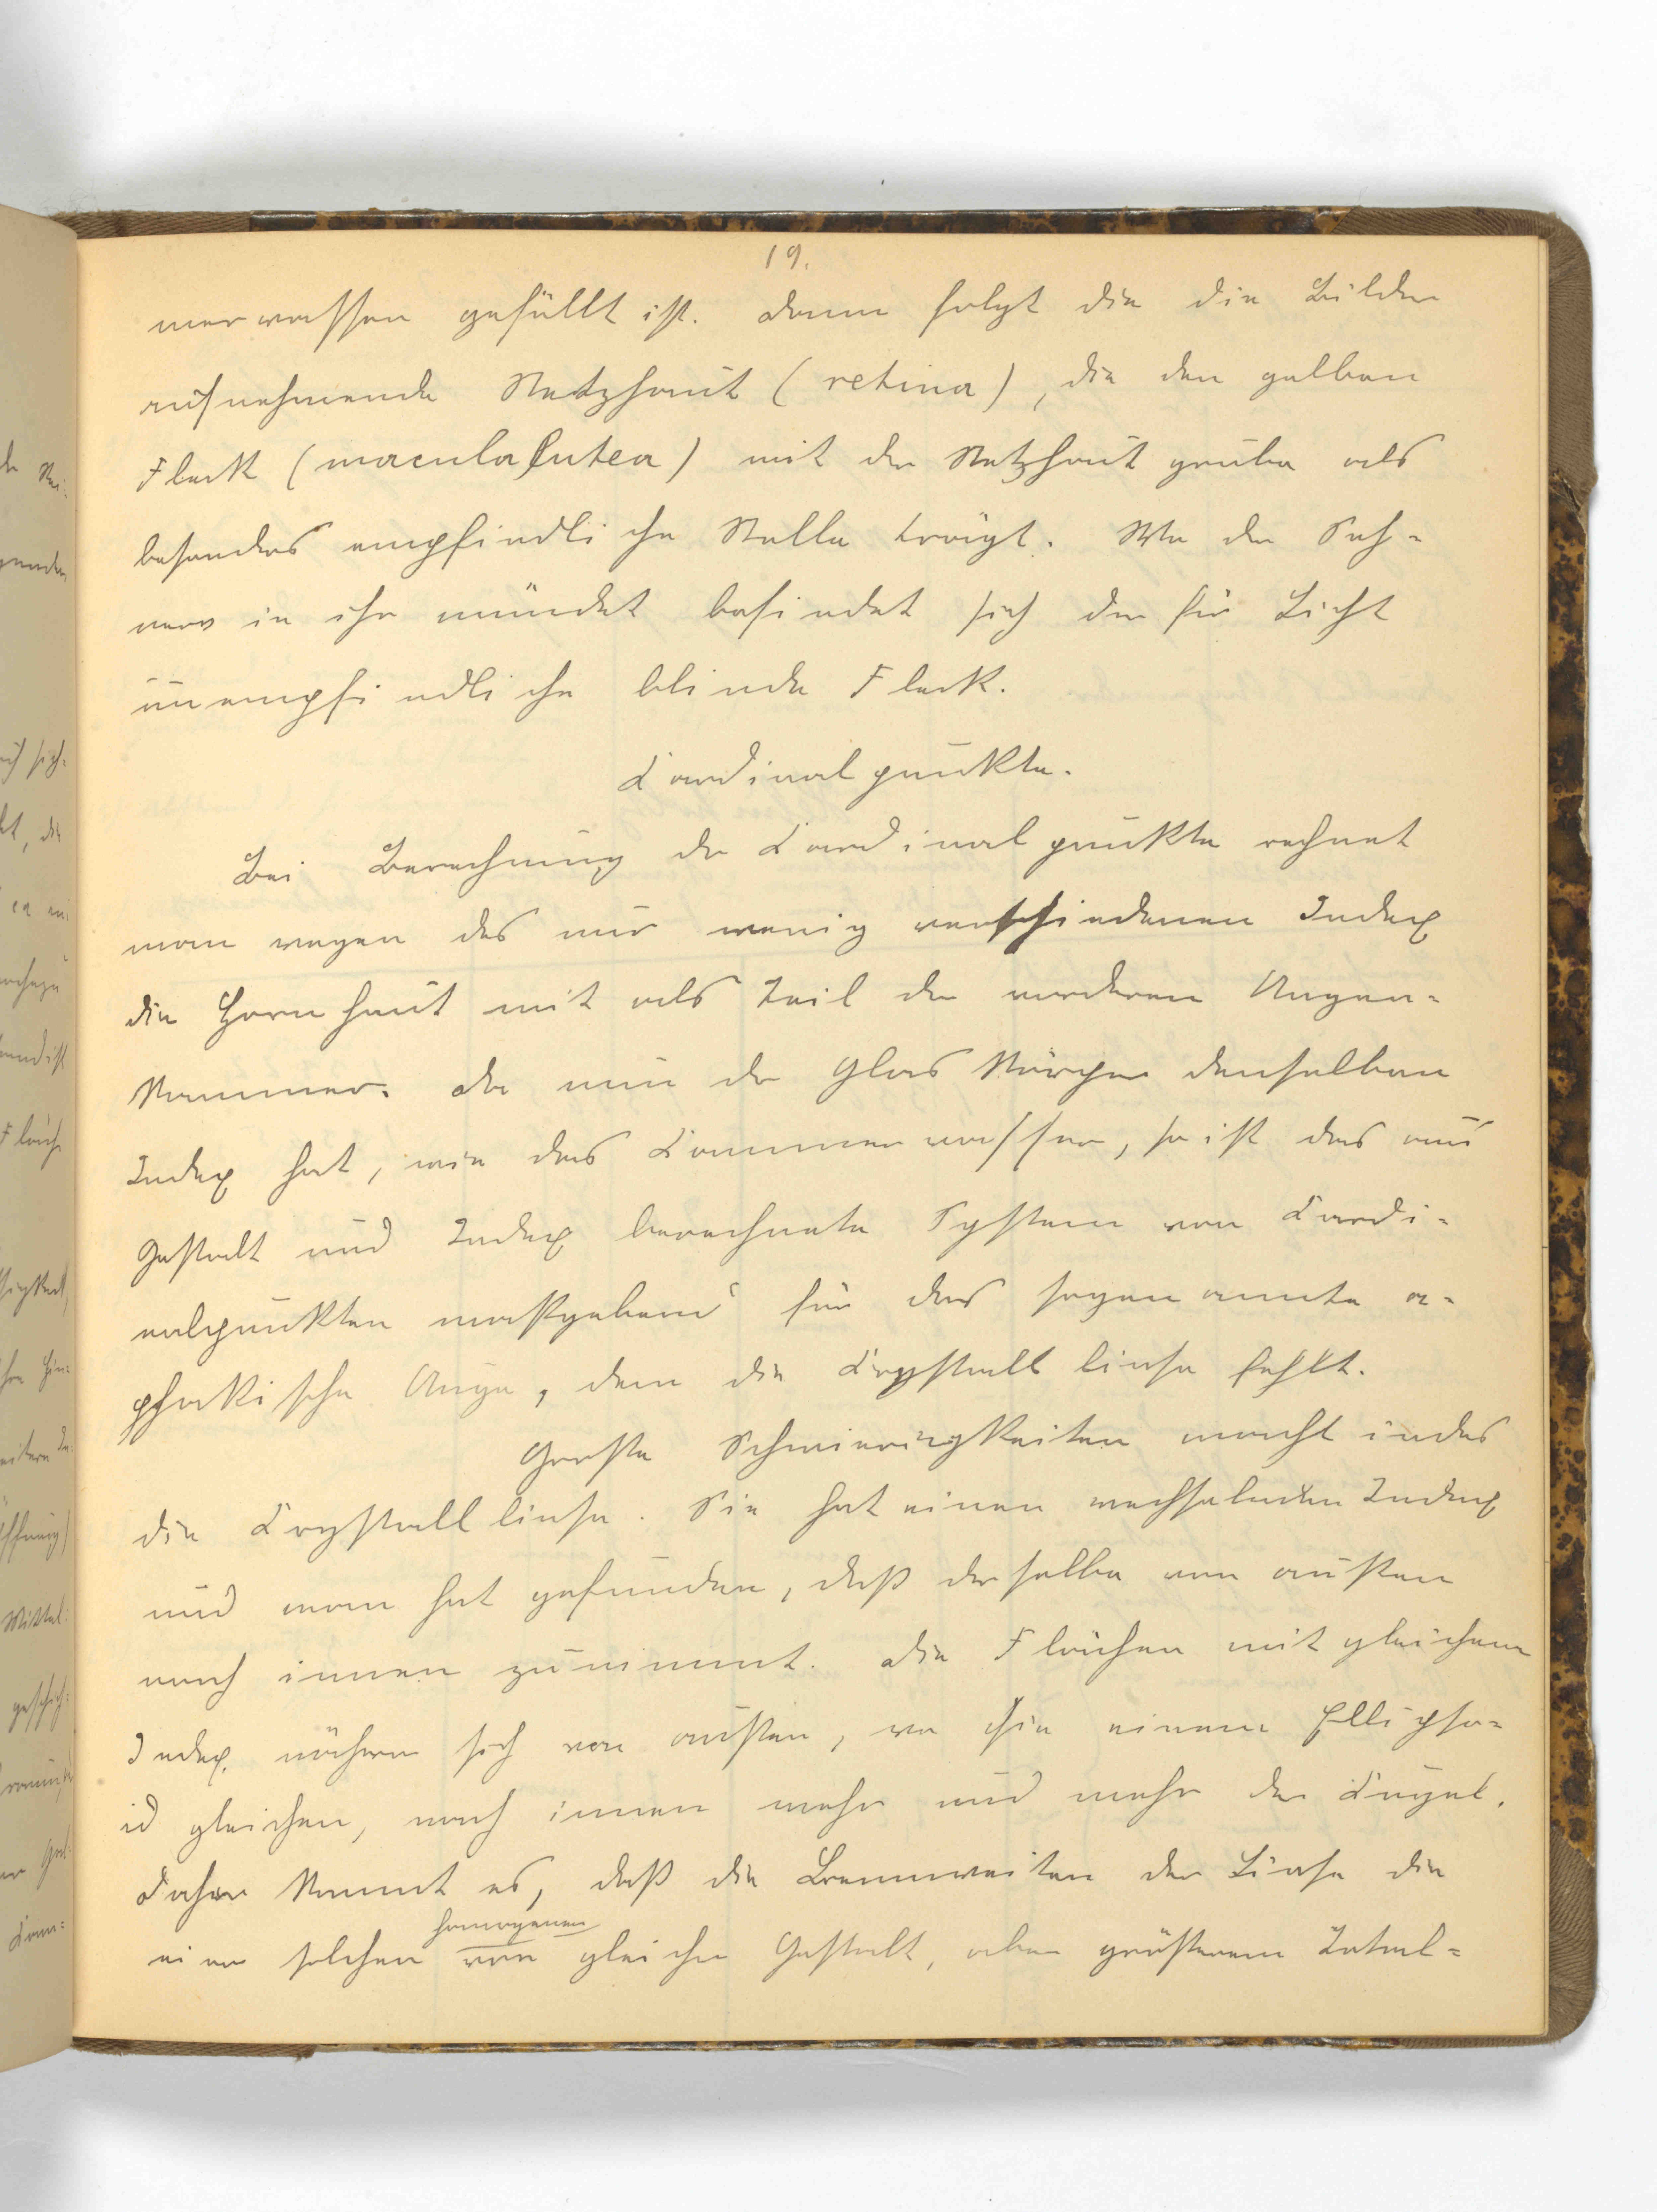 19.
merwasser gefüllt ist. Dann folgt die die Bilder
aufnehmende Netzhaut (retina), die den gelben
Fleck (macula lutea) mit der Netzhautgrube als
besonders empfindliche Stelle trägt. Wo der Seh-
nerv in ihr mündet befindet sich der für Licht
unempfindliche blinde Fleck.
Cardinalpunkte.
Bei Berechnung der Cardinalpunkte rechnet
man wegen des nur wenig verschiedenen Index
die Hornhaut mit als Teil der vorderen Augen-
kammer. Da nun der Glaskörper denselben
Index hat, wie das Cammerwasser, so ist das aus
Gestalt und Index berechnete System von Cardi-
nalpunkten maßgebend für das sogenannte a-
phakische Auge, dem die Crystalllinse fehlt.
Große Schwierigkeiten macht indes
die Crystalllinse. Sie hat einen wechselnden Index
und man hat gefunden, daß derselbe von außen
nach innen zunimmt. Die Flächen mit gleichem
Index nähern sich von außen, wo sie einem Ellipso-
id gleichen, nach innen mehr und mehr der Cugel.
Daher kommt es, daß die Brennweiten der Linse die
homogenen
einer solchen von gleicher Gestalt, aber größerem Total-